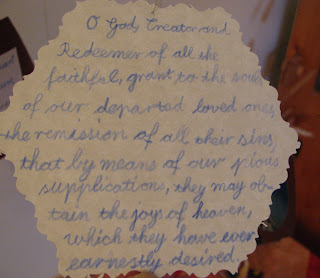 O God, Creator and
Redeemer of all the
faithful, grant to the souls
of our departed loved ones
the remission of all their sins,
that by means of our pious
supplications, they may ob-
tain the joys of heaven,
which they have ever
earnestly desired.